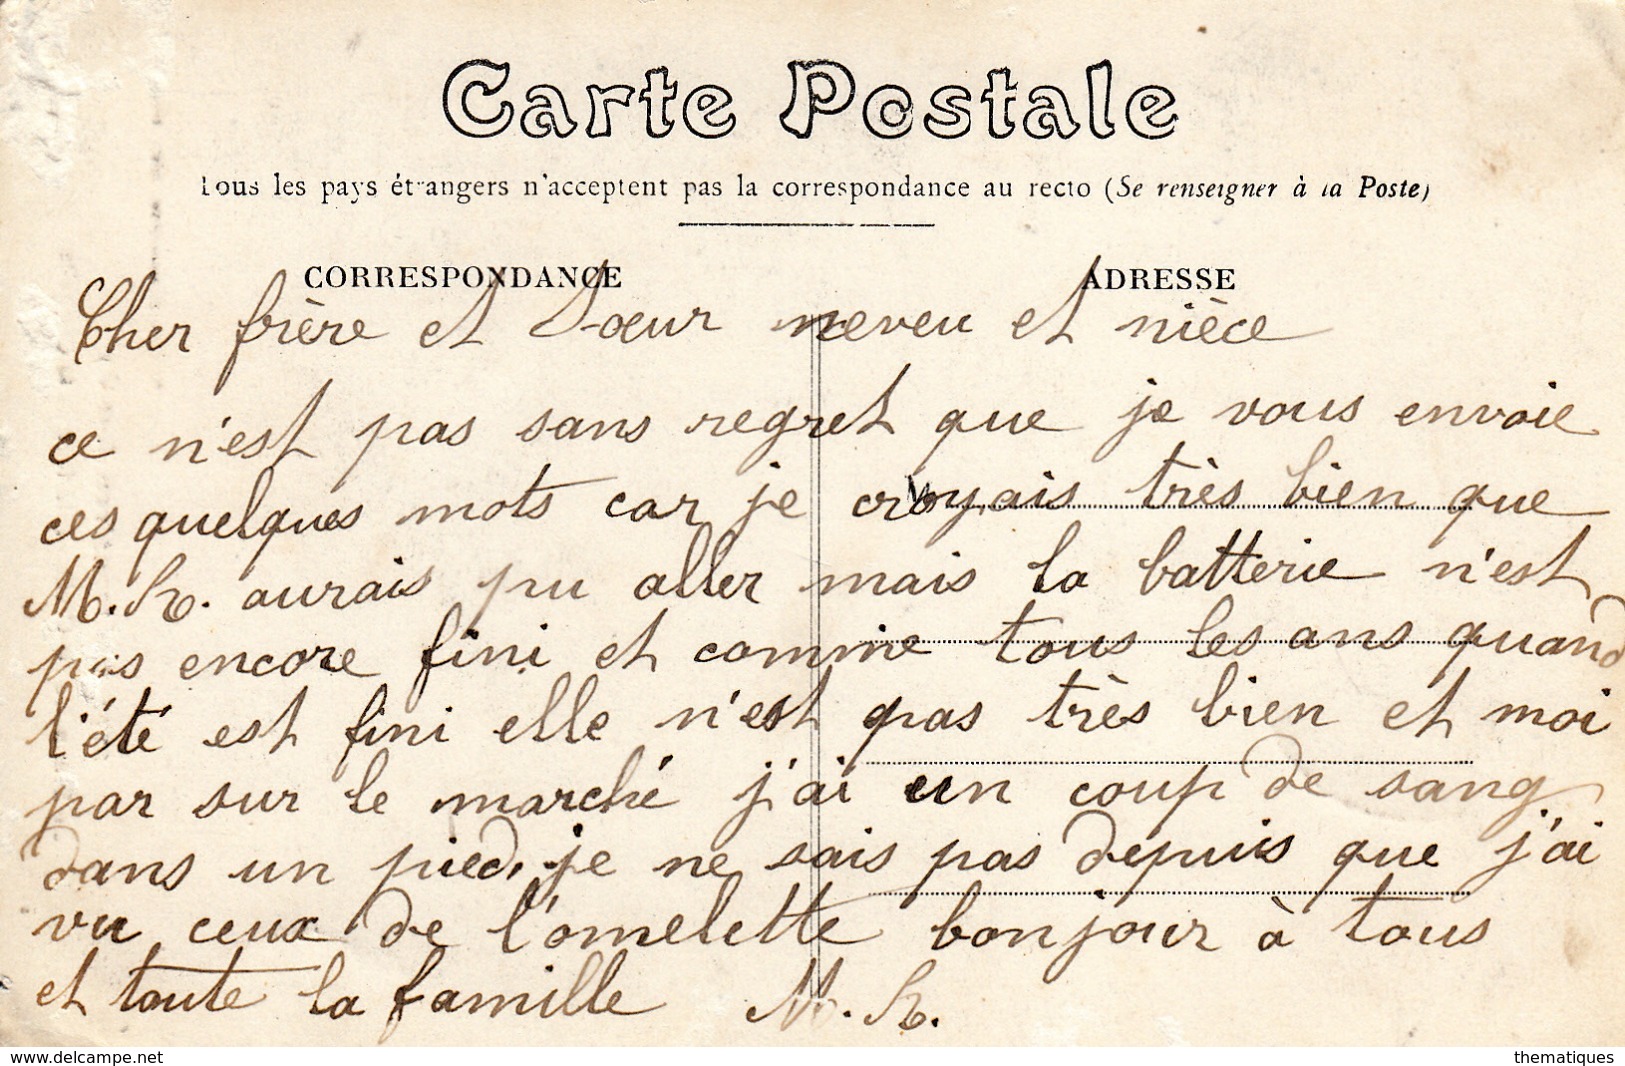 Carte Postale
Tous les pays étrangers n'acceptent pas la correspondance au recto (Se renseigner à la Poste)
CORRESPONDANCE
ADRESSE
Cher frère et Sœur neveu et nièce
ce n'est pas sans regret que je vous envoie
ces quelques mots car je croyais très bien que
M. R. aurais pu aller mais la batterie n'est
pas encore fini et comme tous les ans quand
l'été est fini elle n'est pas très bien et moi
par sur le marché j'ai un coup de sang
dans un pied, je ne sais pas depuis que j'ai
vu ceux de l'omelette bonjour à tous
et toute la famille M. R.
www.delcampe.net
thematiques